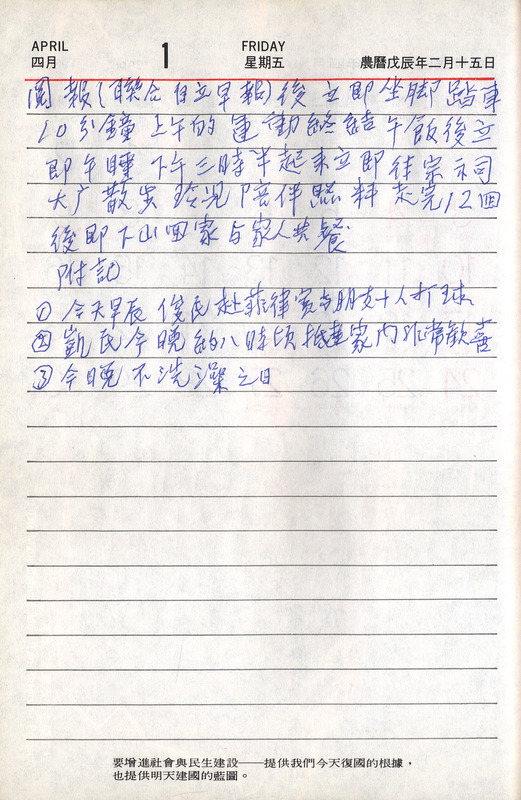 APRIL 1 FRIDAY
四月 星期五 農曆戊辰年二月十五日
報(聯合自立早報)後立即坐脚踏車
10分鐘 上午的運動終結 午飯後立
即午睡 下午三時半起來立即往宗祠
大广散步 玲児陪伴照料 走完12個
後即下山回家与家人共餐
附記
① 今天早辰 俊民赴菲律賓与朋友十人打球
② 凱民今晚的八時頃抵達家內非常歡喜
③ 今日晚不洗澡之日
要增進社會與民生建設——提供我們今天復國的根據，
也提供明天建國的藍圖。